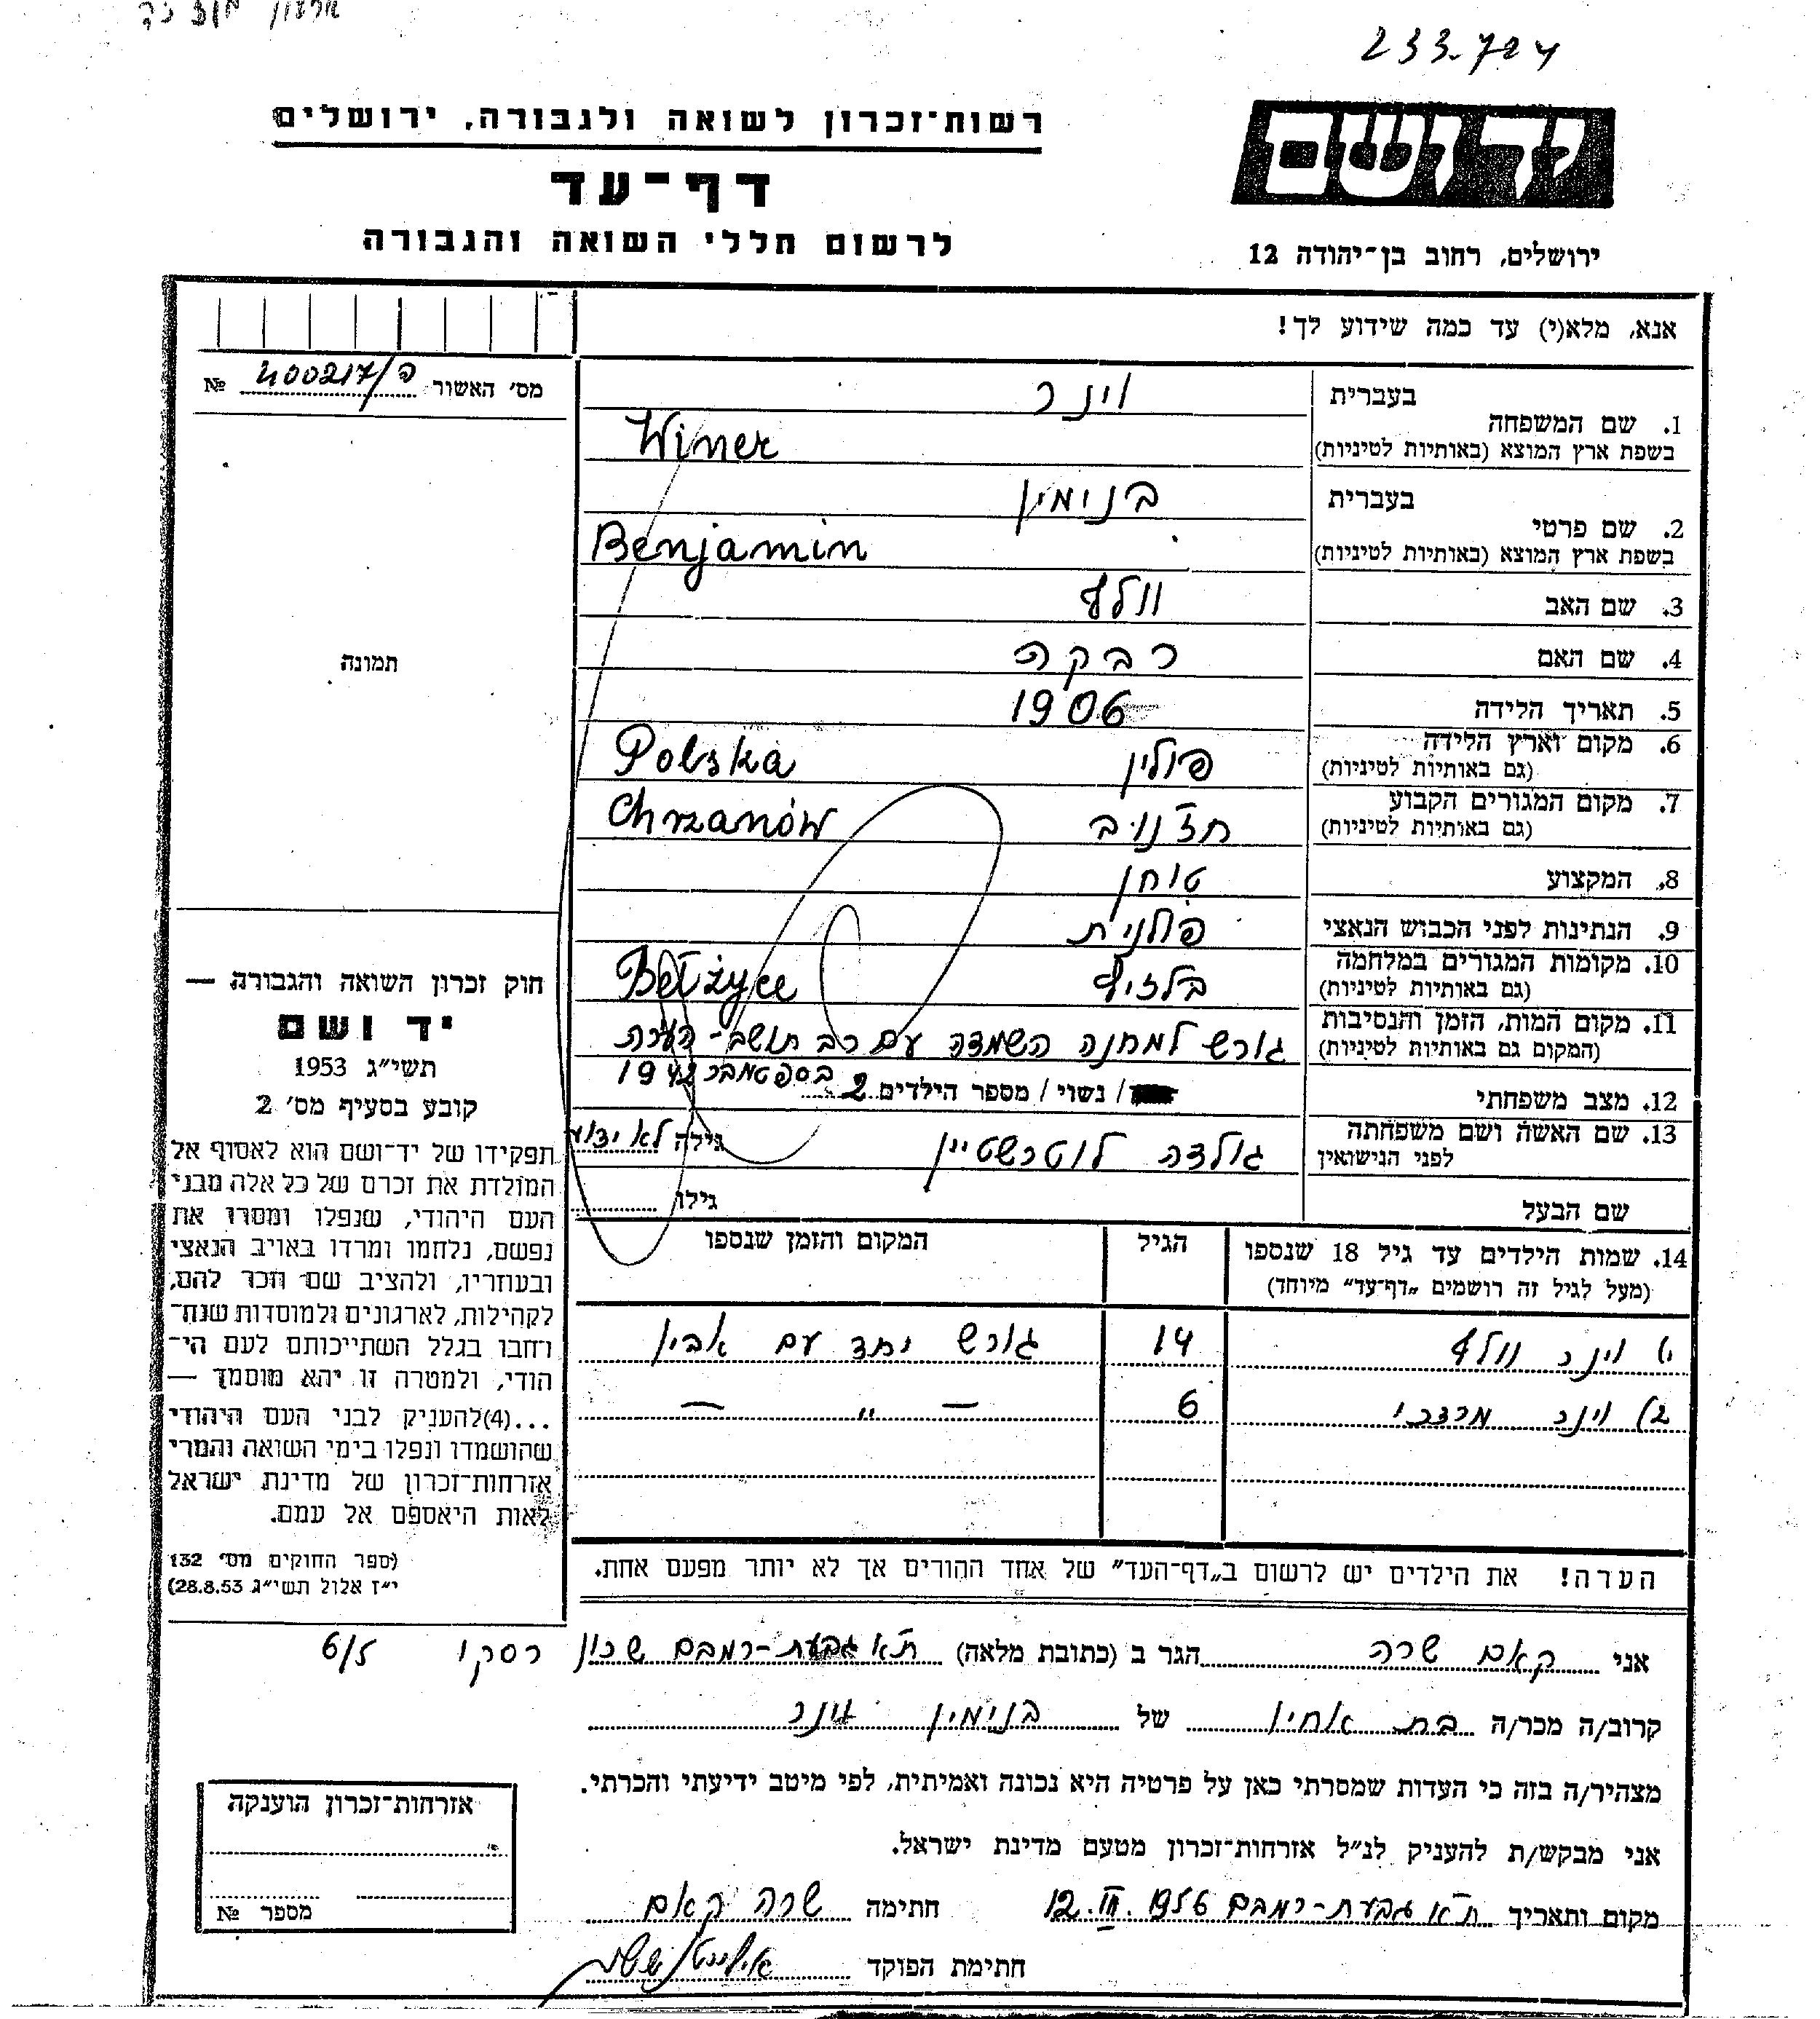 233.724
רשות־זכרון לשואה ולגבורה, ירושלים
יד ושם
דף־עד
לרשום חללי השואה והגבורה
ירושלים, רחוב בן־יהודה 12
אנא, מלא(י) עד כמה שידוע לך!
מס׳ האשור ה/400217 №
תמונה
1. שם המשפחה
בעברית וינר
בשפת ארץ המוצא (באותיות לטיניות) Winer
2. שם פרטי
בעברית בנימין
בשפת ארץ המוצא (באותיות לטיניות) Benjamin
3. שם האב וולף
4. שם האם רבקה
5. תאריך הלידה 1906
6. מקום וארץ הלידה פולין Polska
(גם באותיות לטיניות)
7. מקום המגורים הקבוע חז׳נוב Chrzanów
(גם באותיות לטיניות)
8. המקצוע טוחן
9. הנתינות לפני הכבוש הנאצי פולנית
10. מקומות המגורים במלחמה בלזיץ Bełżyce
(גם באותיות לטיניות)
11. מקום המות, הזמן והנסיבות גורש למחנה השמדה עם רב תושבי־העירה
(המקום גם באותיות לטיניות) בספטמבר 1942
12. מצב משפחתי / נשוי / מספר הילדים 2
13. שם האשה ושם משפחתה גולדה לוטרשטיין גילה לא ידוע
לפני הנישואין
שם הבעל גילו
14. שמות הילדים עד גיל 18 שנספו הגיל המקום והזמן שנספו
(מעל לגיל זה רושמים „דף־עד״ מיוחד)
1) וינר וולף 14 גורש יחד עם אביו
2) וינר מרדכי 6 — ״ —
הערה! את הילדים יש לרשום ב„דף־העד״ של אחד ההורים אך לא יותר מפעם אחת.
חוק זכרון השואה והגבורה —
יד ושם
תשי״ג 1953
קובע בסעיף מס׳ 2
תפקידו של יד־ושם הוא לאסוף אל
המולדת את זכרם של כל אלה מבני
העם היהודי, שנפלו ומסרו את
נפשם, נלחמו ומרדו באויב הנאצי
ובעוזריו, ולהציב שם וזכר להם,
לקהילות, לארגונים ולמוסדות שנח־
רבו בגלל השתייכותם לעם הי־
הודי, ולמטרה זו יהא מוסמך —
...(4)להעניק לבני העם היהודי
שהושמדו ונפלו בימי השואה והמרי
אזרחות־זכרון של מדינת ישראל
לאות היאספם אל עמם.
(ספר החוקים מס׳ 132
י״ז אלול תשי״ג 28.8.53)
אני קאם שרה הגר ב (כתובת מלאה) ת״א גבעת־רמבם שכון רסקו 6/5
קרוב/ה מכר/ה בת אחיו של בנימין וינר
מצהיר/ה בזה כי העדות שמסרתי כאן על פרטיה היא נכונה ואמיתית, לפי מיטב ידיעתי והכרתי.
אני מבקש/ת להעניק לנ״ל אזרחות־זכרון מטעם מדינת ישראל.
מקום ותאריך ת״א גבעת־רמבם 12.III.1956 חתימה שרה קאם
חתימת הפוקד
אזרחות־זכרון הוענקה
מספר №